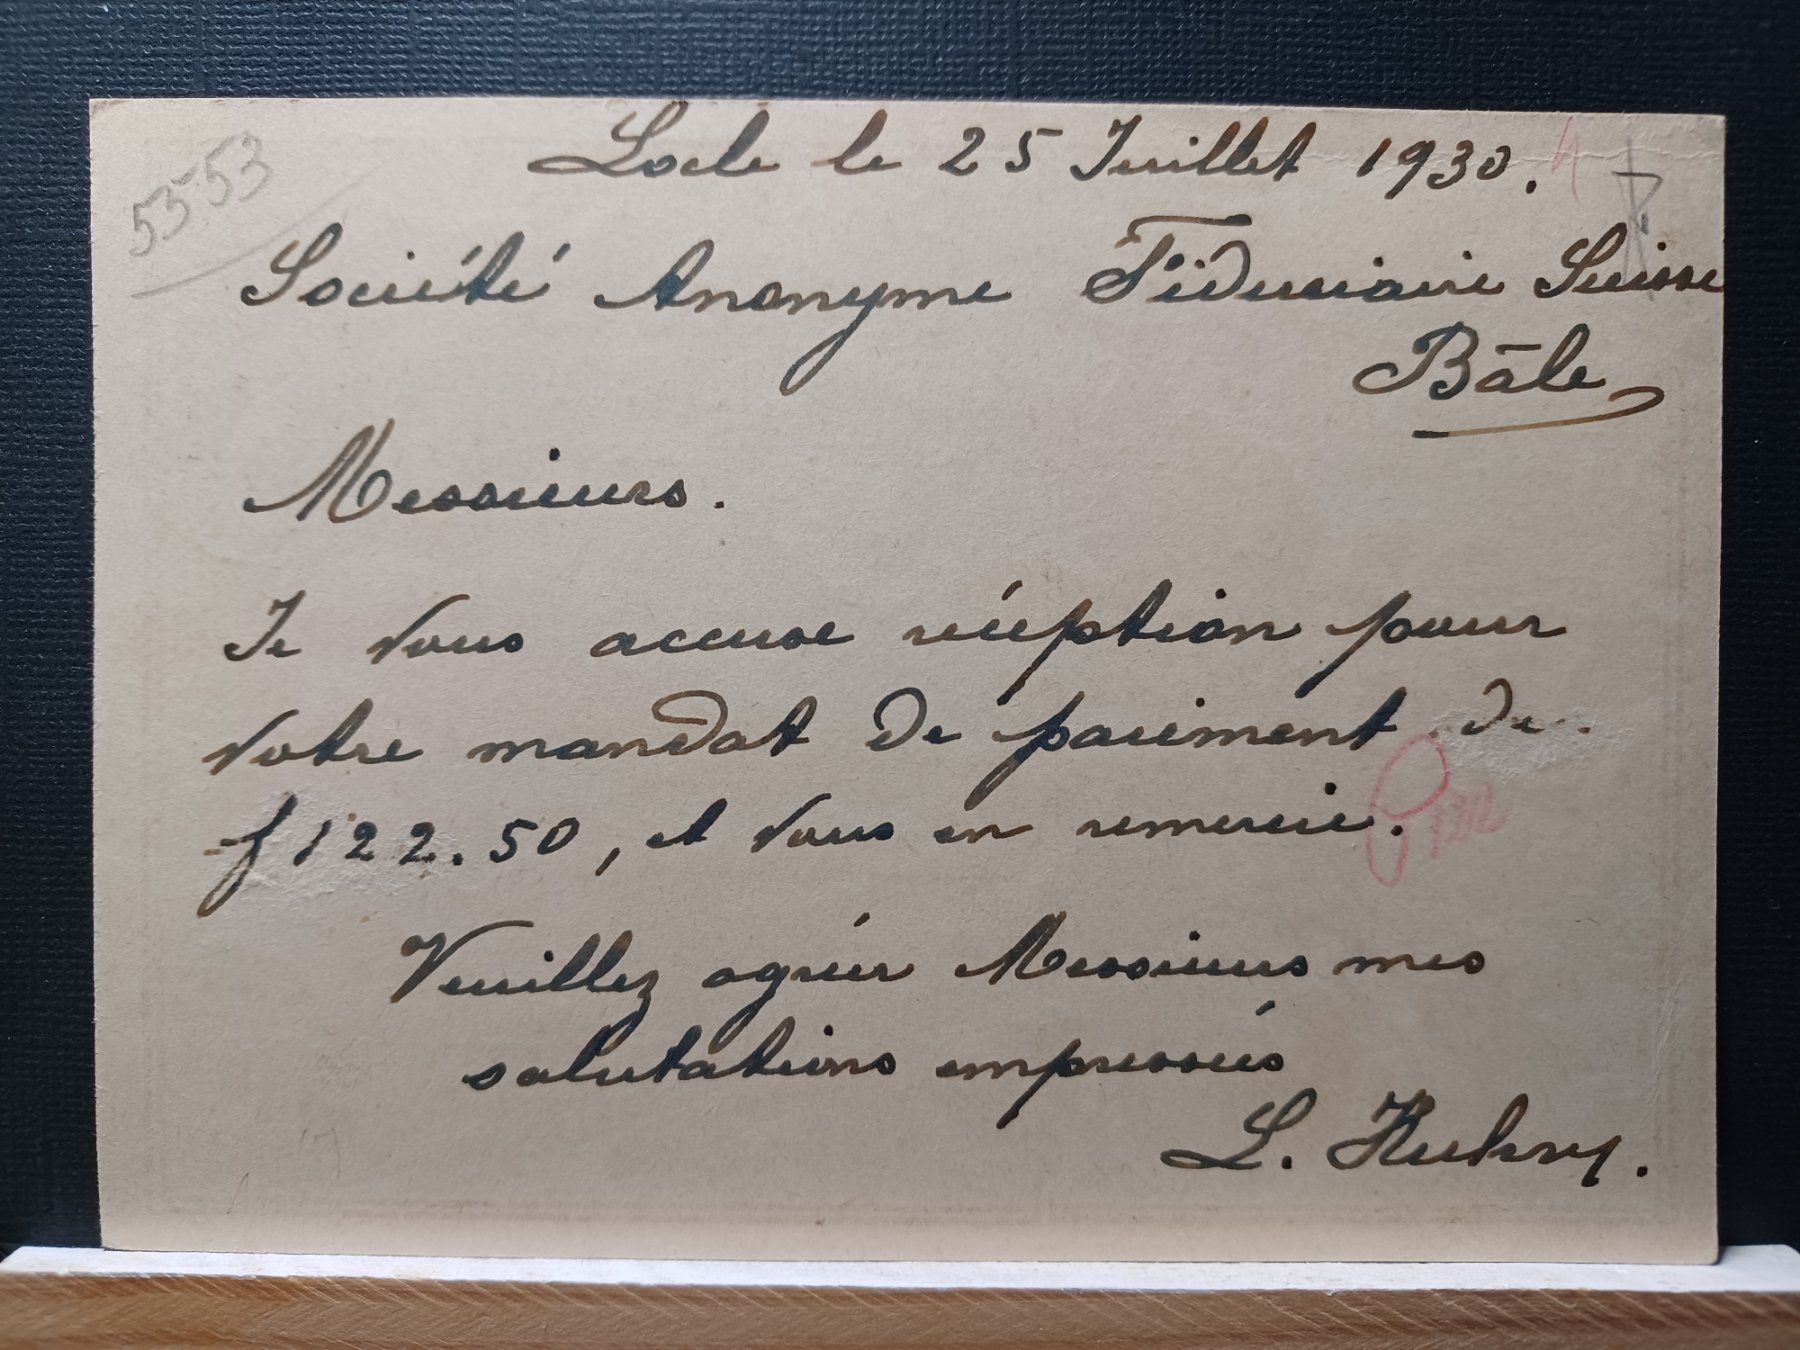 5553
Locle le 25 Juillet 1930.
Société Anonyme Fiduciaire Suisse
Bâle
Messieurs.
Je vous accuse réception pour
votre mandat de paiement de
f 122.50, et vous en remercie.
Veuillez agréer Messieurs mes
salutations empressées
L.